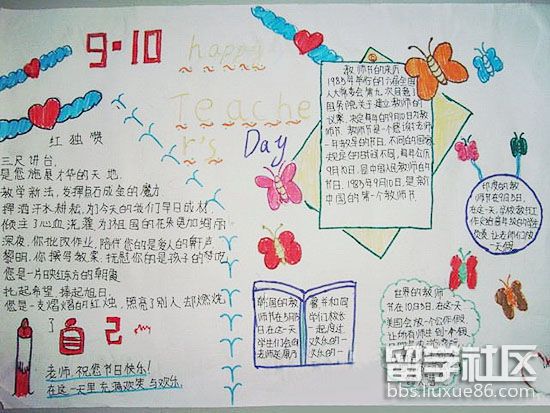 9·10
happy
Teache
r's Day
红烛赞
三尺讲台，
是您施展才华的天地，
教学新法，发挥点石成金的魔力
挥洒汗水耕耘，为今天的我们早日成材
倾注了心血浇灌为祖国的花朵更加绚丽
深夜，你批改作业，陪伴您的是爱人的鼾声
黎明，你撰写教案，抚慰你的是孩子的梦呓
您是一片映红东方的朝霞
托起希望，捧起旭日，
您是一支熠熠的红烛，照亮了别人，却燃烧
了自己
老师，祝您节日快乐！
在这一天里充满欢笑与欢乐。
教师节的来历
1985年举行的六届全国
人大常委会第九次
国务院关于建立教师的
议案，决定每年的9月10日为教
师节。教师节是一个感谢老师
一年教学的节日，不同的国家
规定的时间不同，每年公历
9月10日，是中国人民教师的
节日，1985年9月10日，是新
中国的第一个教师节。
印度的教
师节在9月5日，
在这一天，
韩国的教
师节在5月15
日，在这一天
学生们会向
老师送康乃
馨并和同
学们，校长
一起度过
欢乐的一
世界的教师
节在10月5日，在这天
美国会放一个公休假，
留学社区
bbs.liuxue86.com